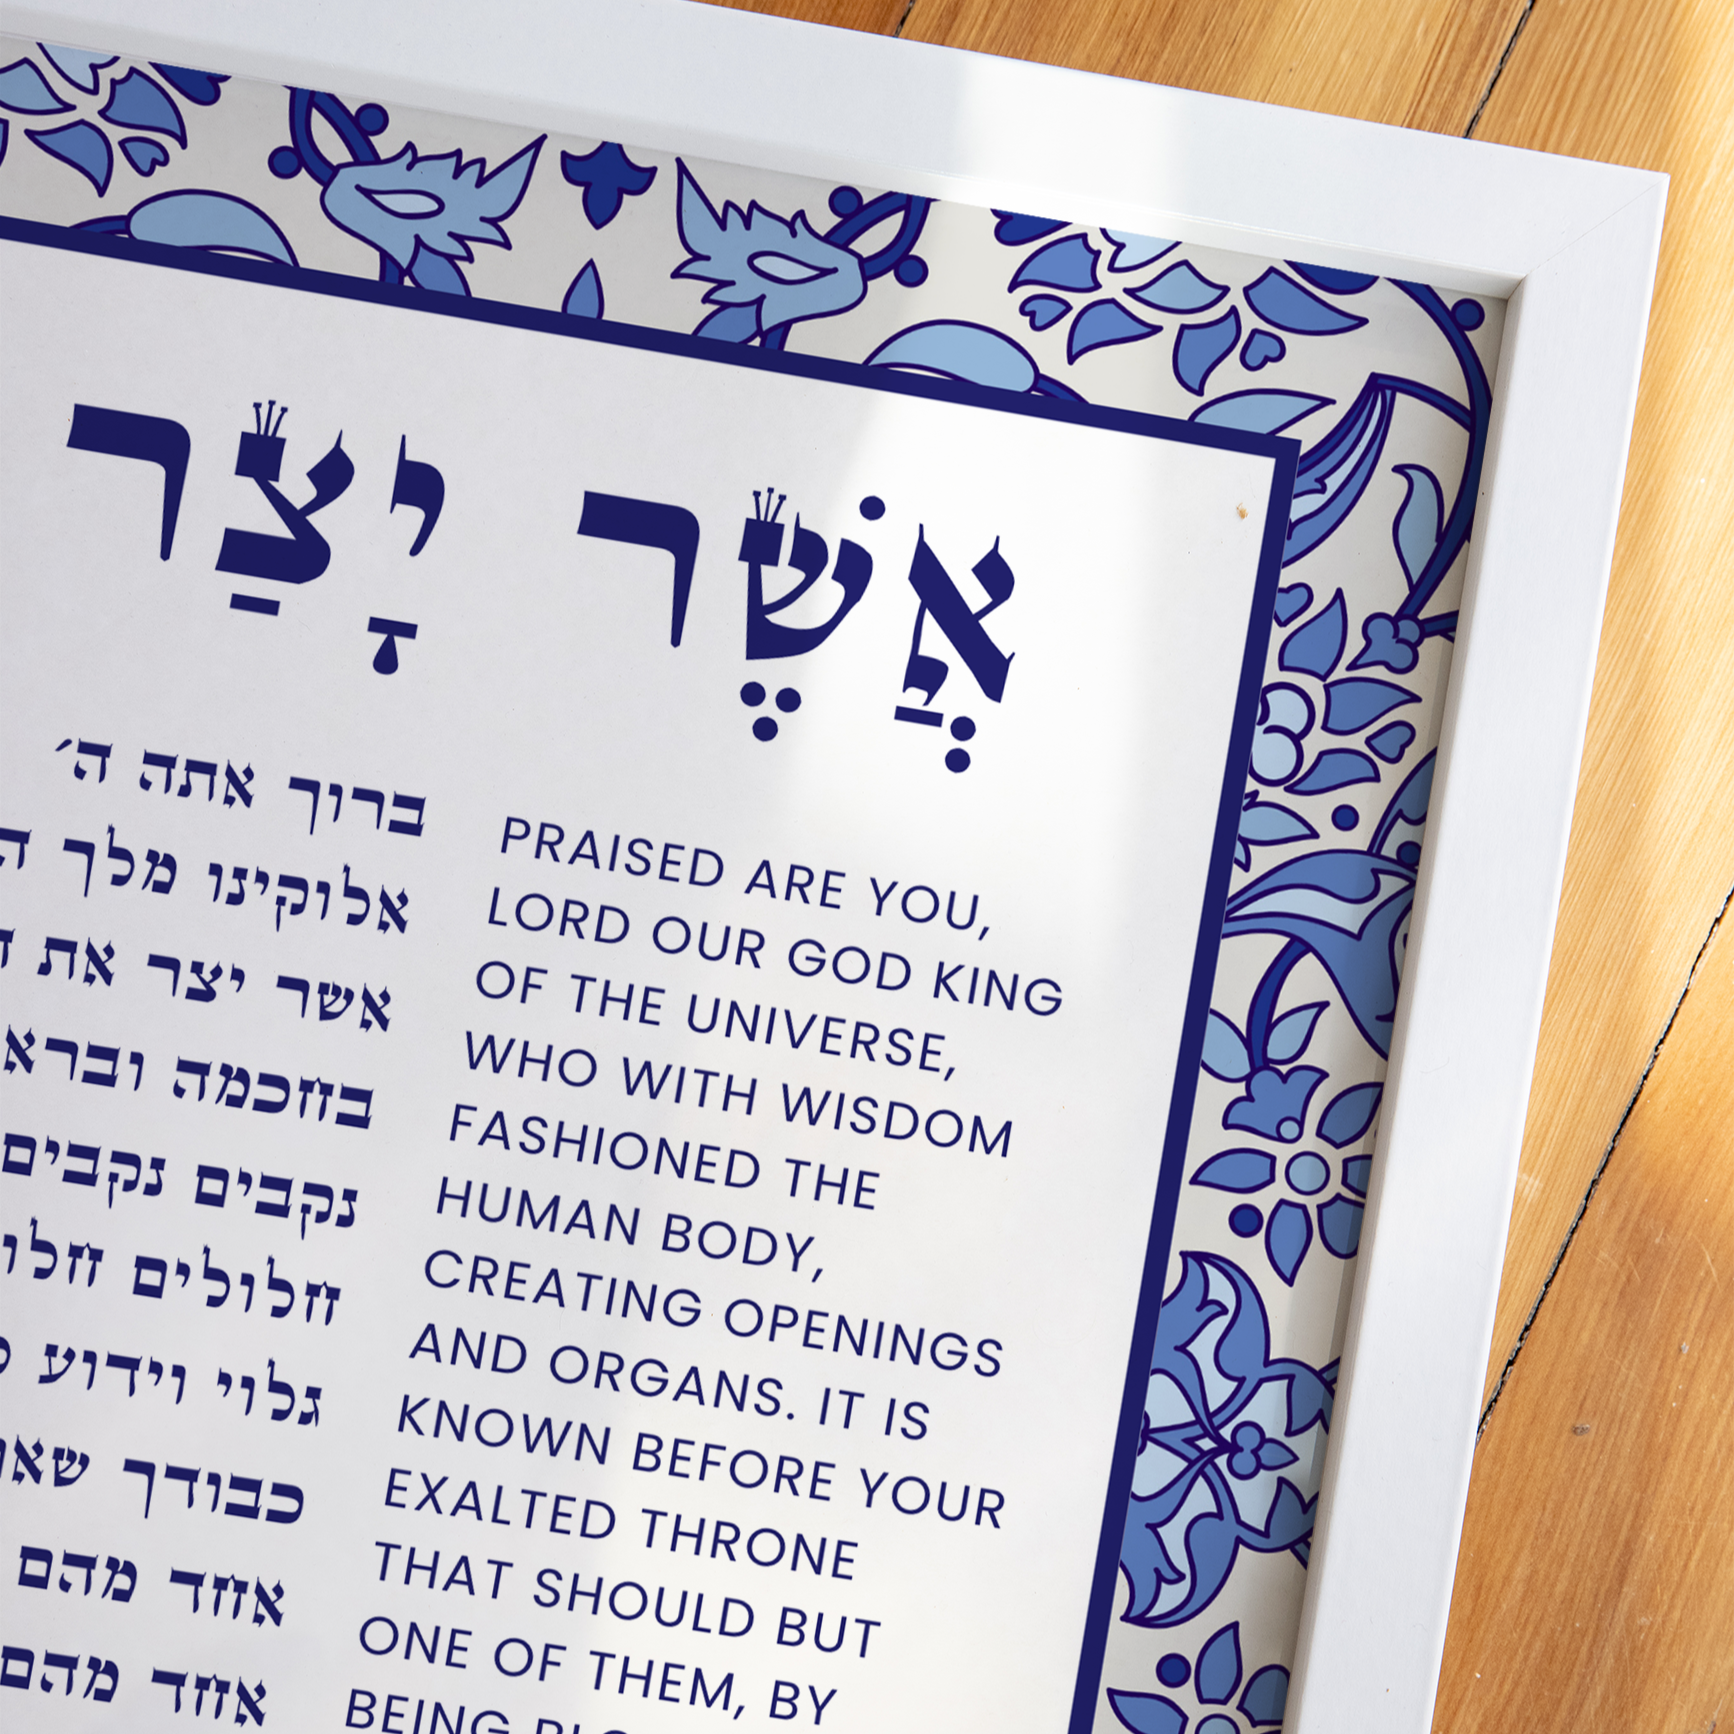 אֲשֶׁר יָצַר
ברוך אתה ה׳
אלוקינו מלך
אשר יצר את
בחכמה וברא
נקבים נקבים
חלולים
גלוי וידוע
כבודך
אחד מהם
אחד מהם
PRAISED ARE YOU,
LORD OUR GOD KING
OF THE UNIVERSE,
WHO WITH WISDOM
FASHIONED THE
HUMAN BODY,
CREATING OPENINGS
AND ORGANS. IT IS
KNOWN BEFORE YOUR
EXALTED THRONE
THAT SHOULD BUT
ONE OF THEM, BY
BEING